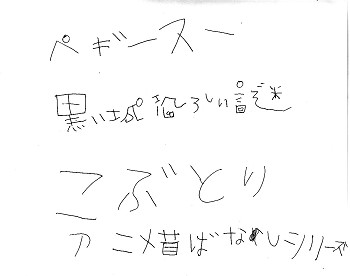 ペギースー
黒い城と恐ろしい謎
こぶとり
アニメ昔ばなしシリーズ